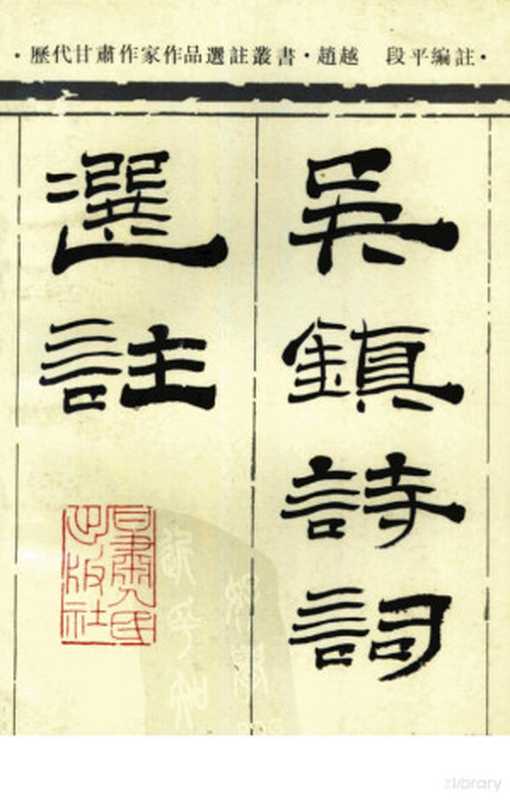 ·歷代甘肅作家作品選註叢書·趙越 段平編註·
吳鎮詩詞
選註
甘肅人民
出版社
library